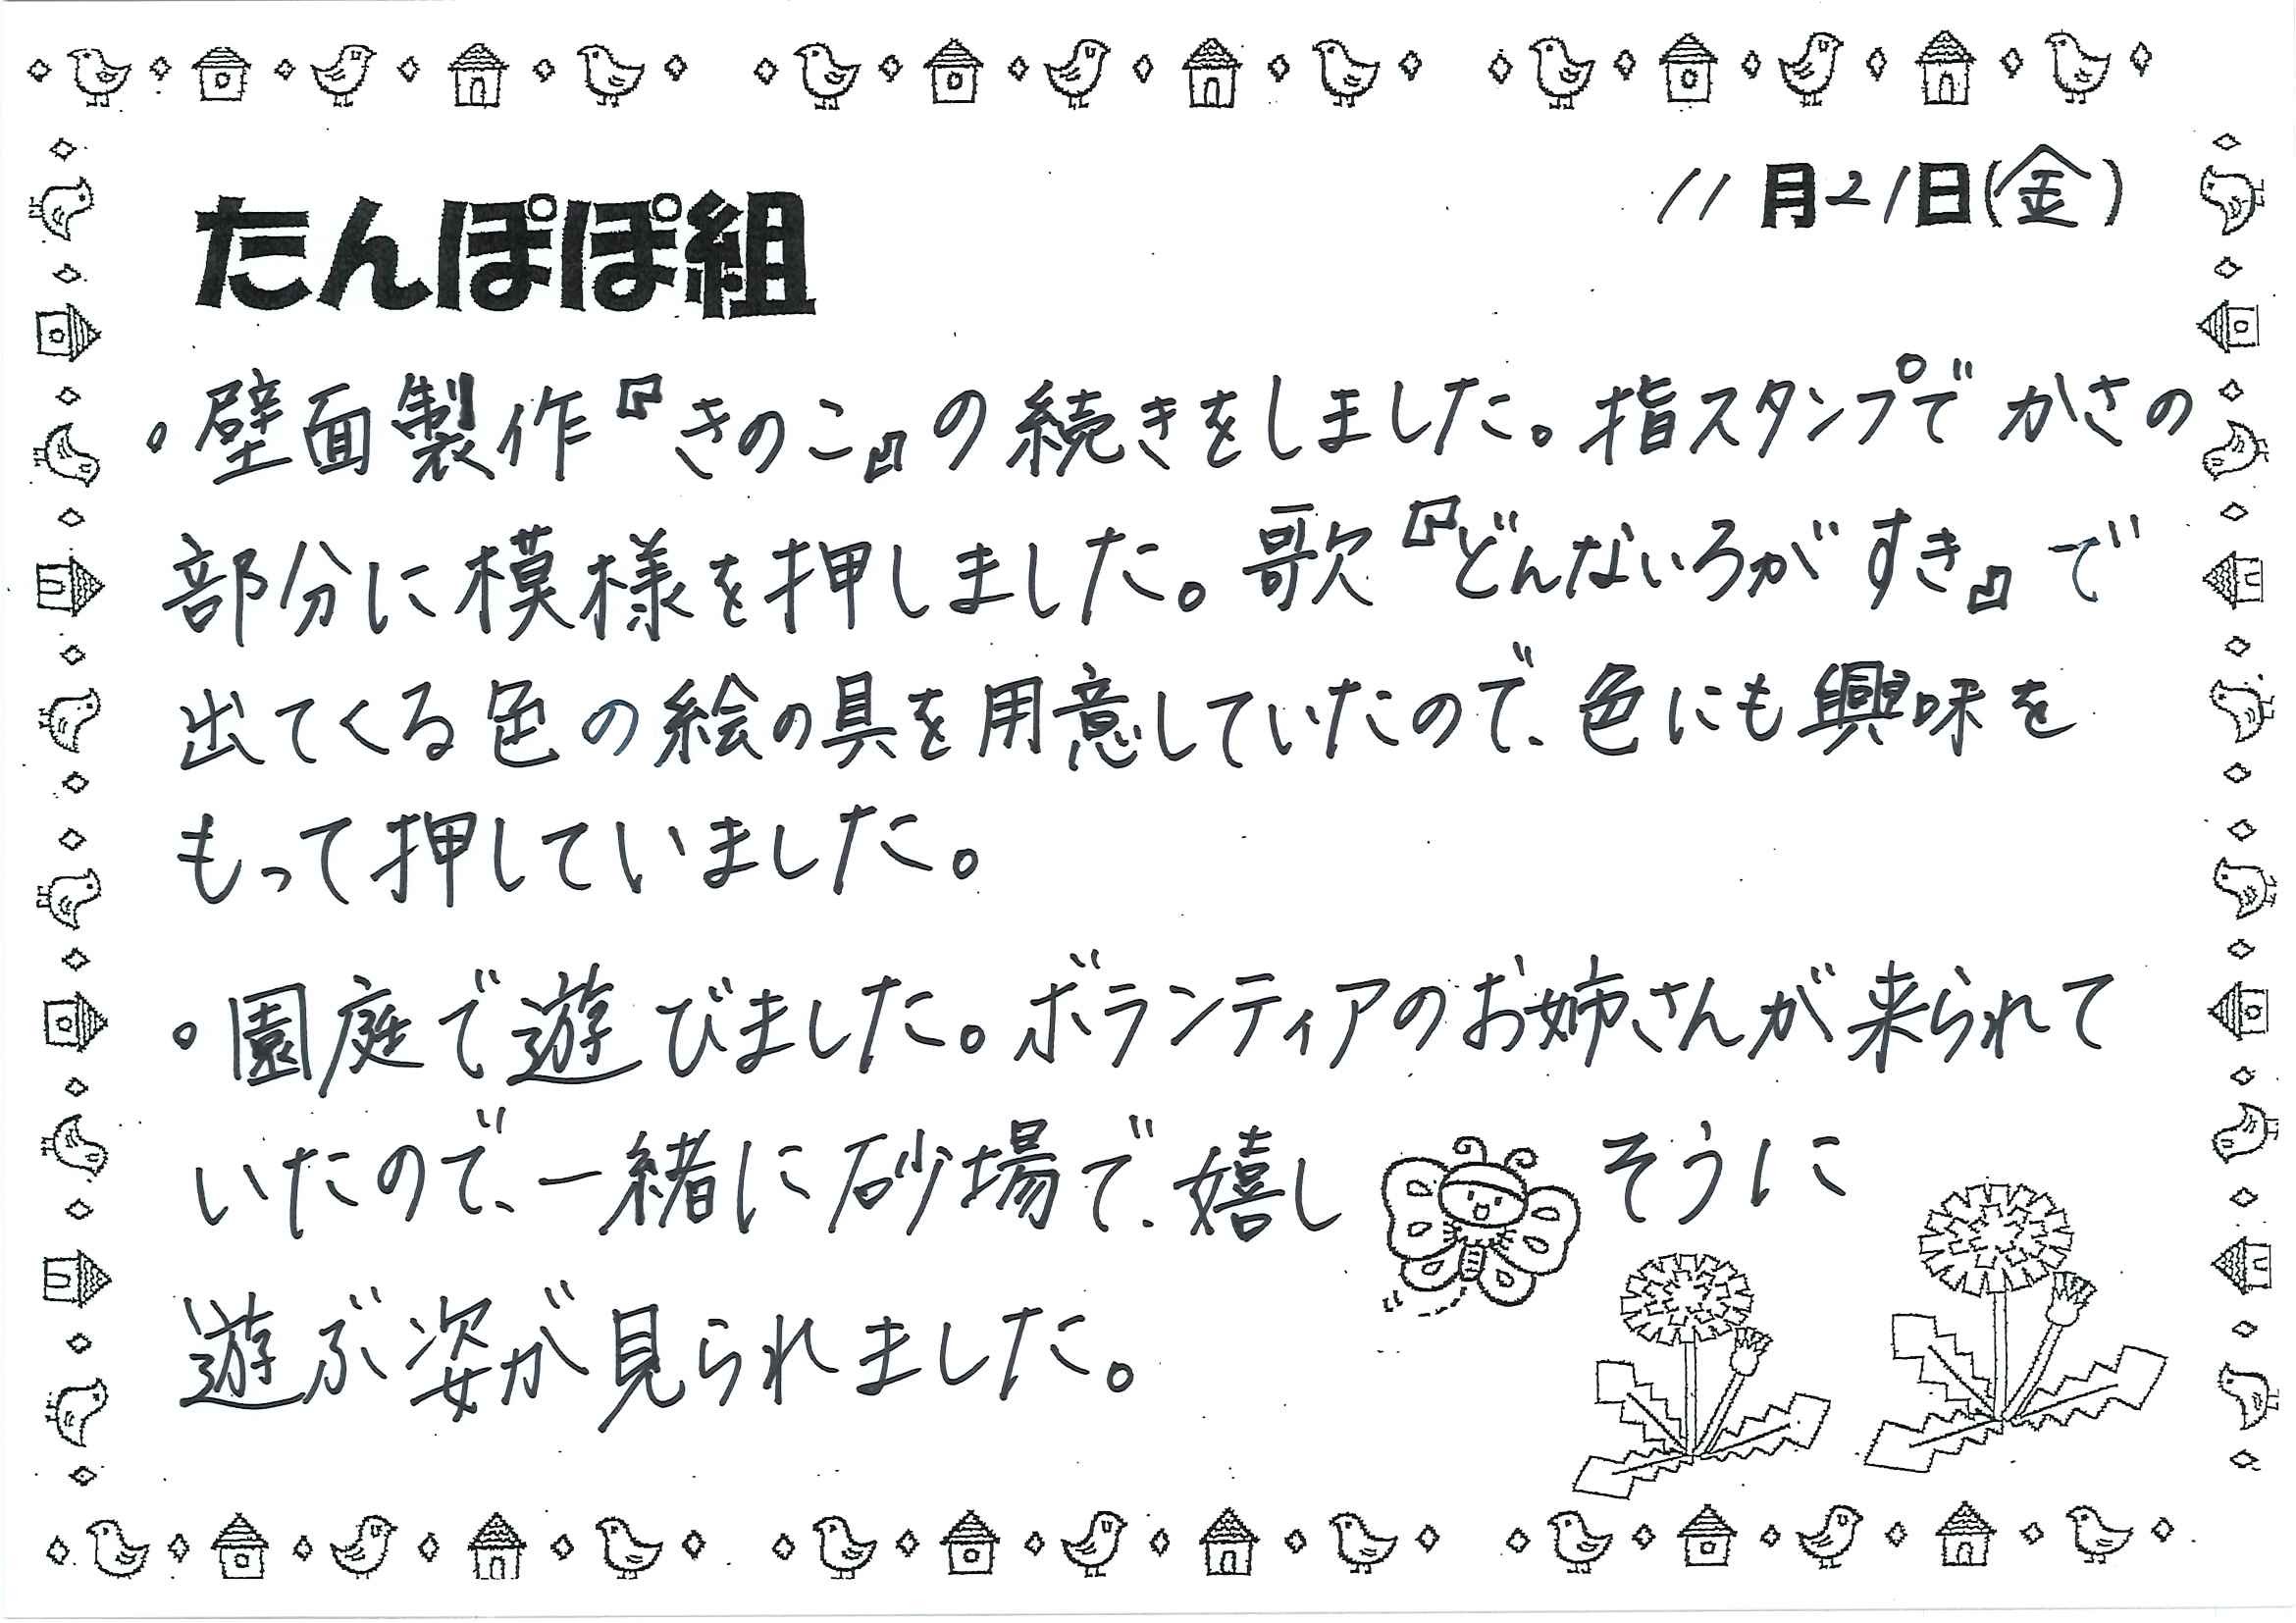 11月21日(金)
たんぽぽ組
。壁面製作『きのこ』の続きをしました。指スタンプでかさの
部分に模様を押しました。歌『どんないろがすき』で
出てくる色の絵の具を用意していたので、色にも興味を
もって押していました。
。園庭で遊びました。ボランティアのお姉さんが来られて
いたので、一緒に砂場で、嬉しそうに
遊ぶ姿が見られました。